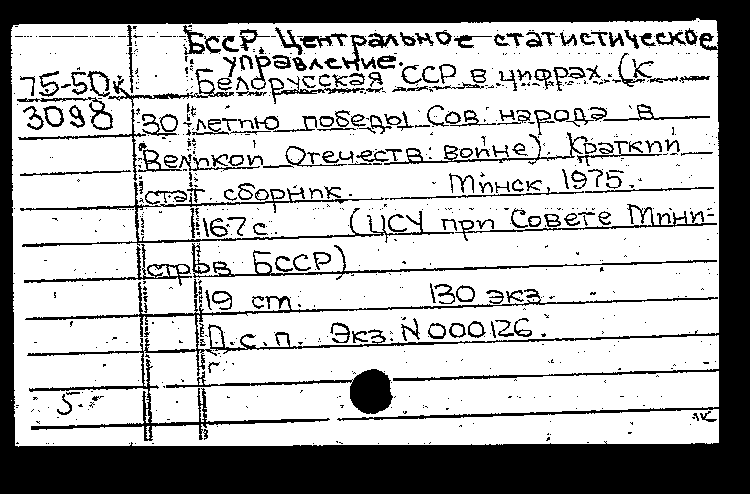 БССР. Центральное статистическое
управление.
75-50к Белорусская ССР в цифрах. (К
3098 30-летию победы Сов. народа в
Великой Отечеств. войне). Краткий
стат. сборник. Минск, 1975.
167 с. (ЦСУ при Совете Мини-
стров БССР)
19 см. 130 экз.
Д.с.п. Экз. N 000126.
5.